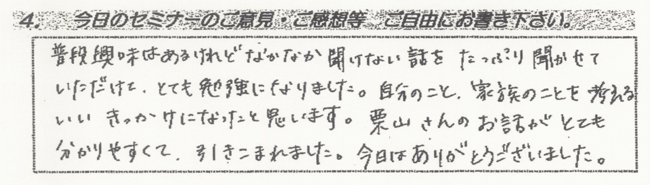 4. 今日のセミナーのご意見・ご感想等 ご自由にお書き下さい。
普段興味はあるけれどなかなか聞けない話をたっぷり聞かせて
いただけて、とても勉強になりました。自分のこと、家族のことを考える
いいきっかけになったと思います。栗山さんのお話がとても
分かりやすくて、引きこまれました。今日はありがとうございました。